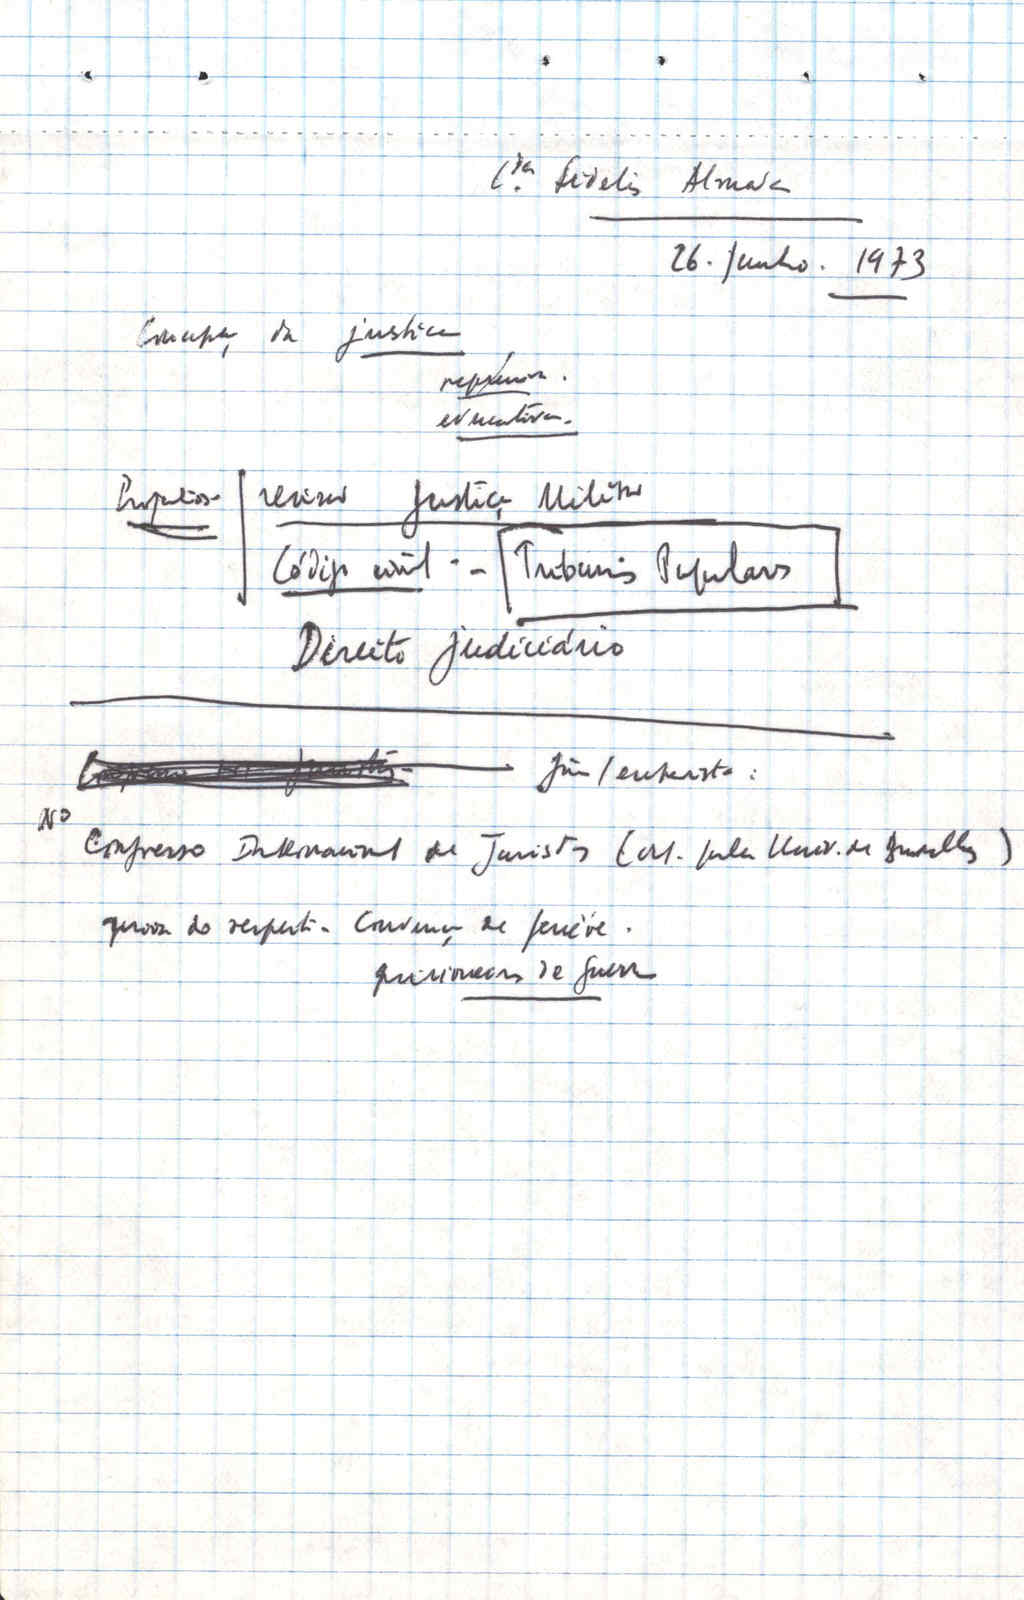 C.da Fidelis Almada
26. Junho. 1973
Concepç da justiça
repressiva.
educativa.
Propostas revisar Justiça Militar
Código civil - - Tribunais Populares
Direito judiciário
Jin / entrevista:
No
Congresso Internacional de Juristas (org. pela Univ. de Bruxelles)
do respeito Convenç de Genève.
prisioneiros de Guerra